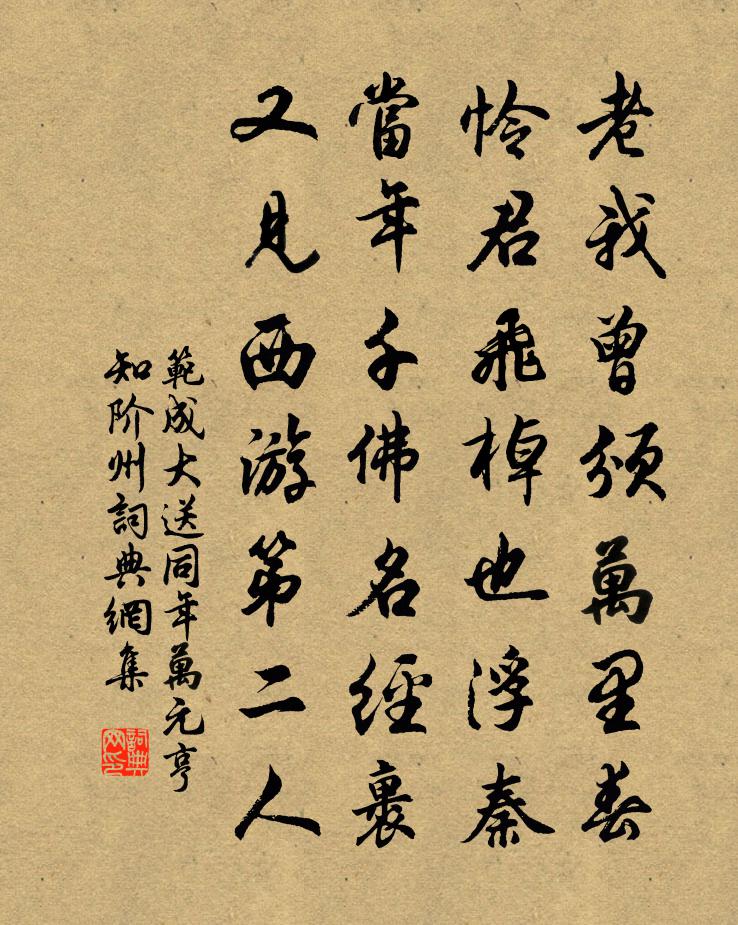 老我曾頒萬里春
怜君飛棹也浮秦
當年千佛名經裏
又見西游第二人
範成大送同年萬元亨
知阶州詞典網集
詞典
网印